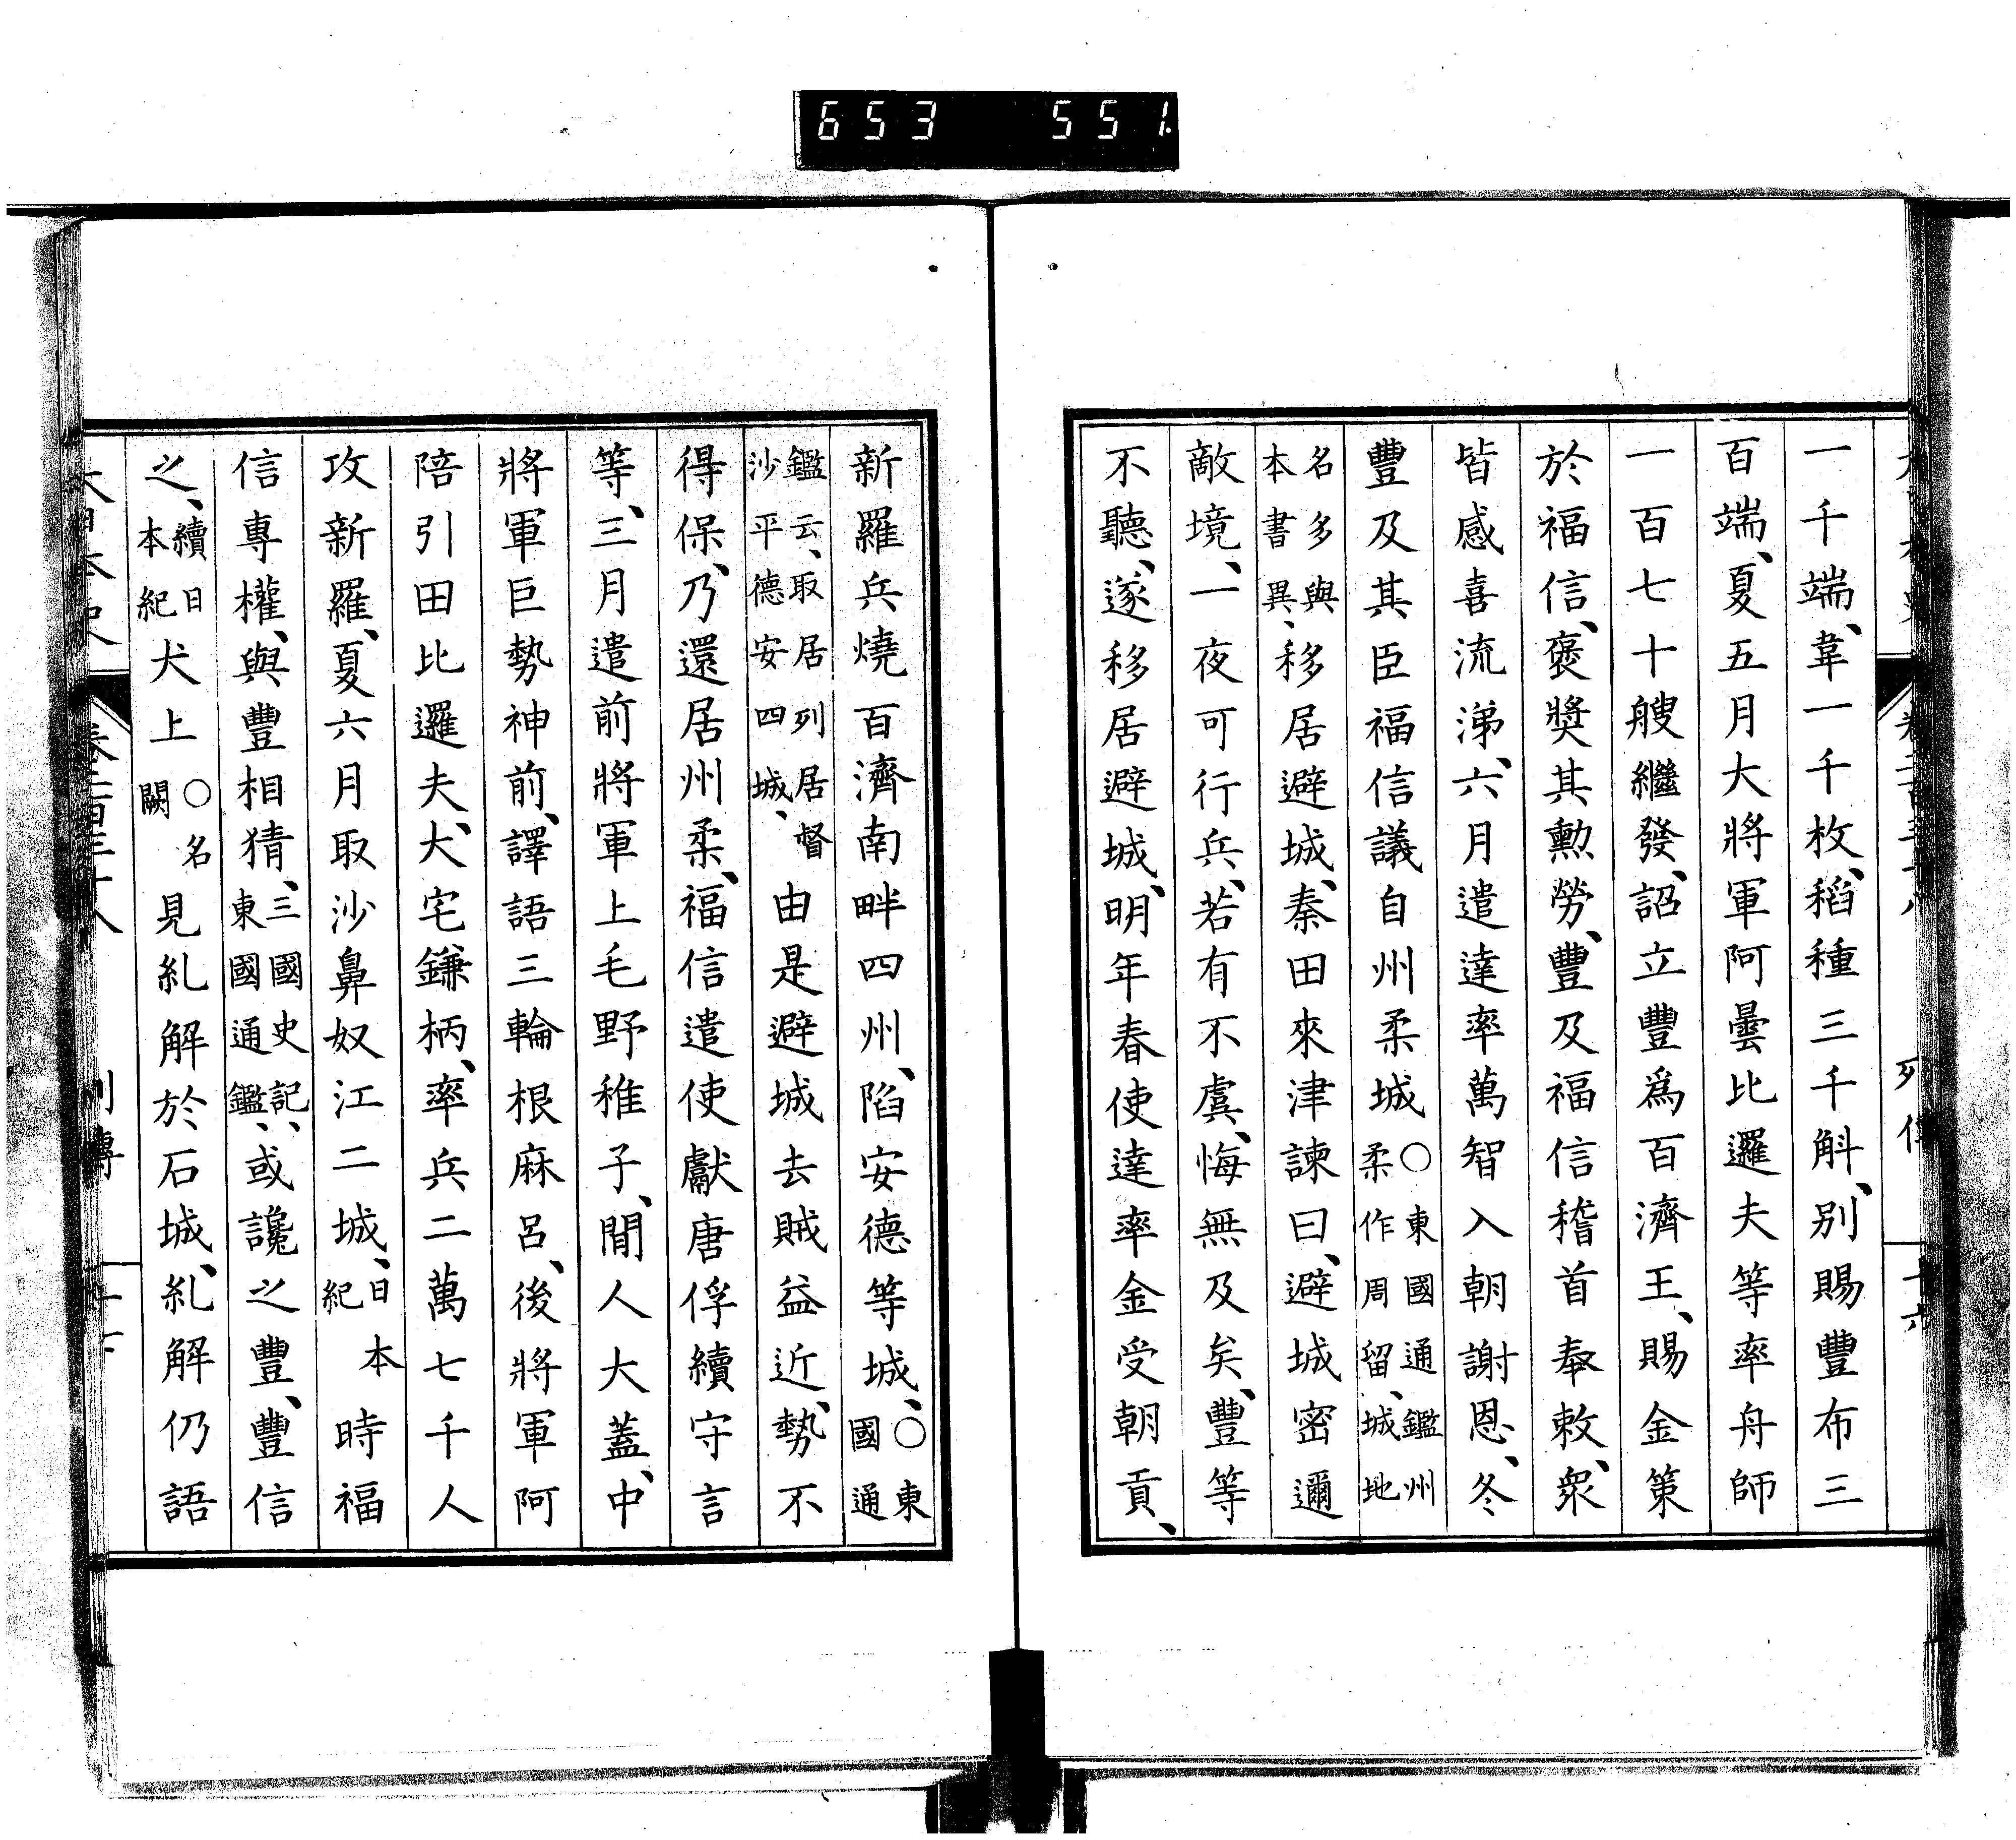 653 551
一千端、韋一千枚、稻種三千斛、別賜豐布三
百端、夏五月大將軍阿曇比邏夫等率舟師
一百七十艘繼發、詔立豐爲百濟王、賜金策
於福信、褒奬其勲勞、豐及福信稽首奉敕、衆
皆感喜流涕、六月遣達率萬智入朝謝恩、冬
豐及其臣福信議自州柔城○東國通鑑州柔作周留、城地
名多與本書異、移居避城、秦田來津諫曰、避城密邇
敵境、一夜可行兵、若有不虞、悔無及矣、豐等
不聽、遂移居避城、明年春使達率金受朝貢、
新羅兵燒百濟南畔四州、陷安德等城、○東國通
鑑云、取居列居督沙平德安四城、由是避城去賊益近、勢不
得保、乃還居州柔、福信遣使獻唐俘續守言
等、三月遣前將軍上毛野稚子、間人大蓋、中
將軍巨勢神前、譯語三輪根麻呂、後將軍阿
陪引田比邏夫、大宅鎌柄、率兵二萬七千人
攻新羅、夏六月取沙鼻奴江二城、日本紀時福
信專權、與豐相猜、三國史記、東國通鑑、或讒之豐、豐信
之、續日本紀犬上○名闕見糺解於石城、糺解仍語
列傳